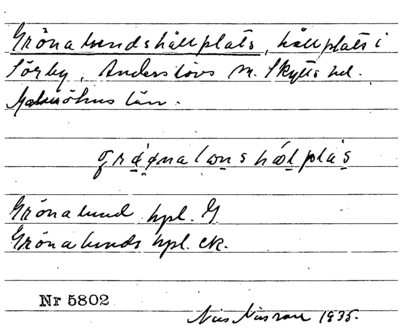 Gröna lunds hållplats, hållplats i
Sörby, Anderslövs sn. Skytts hd.
Malmöhus län.
Gröna lund hpl. G
Gröna lunds hpl. ek.
Nr 5802
Nils Nilsson 1935.